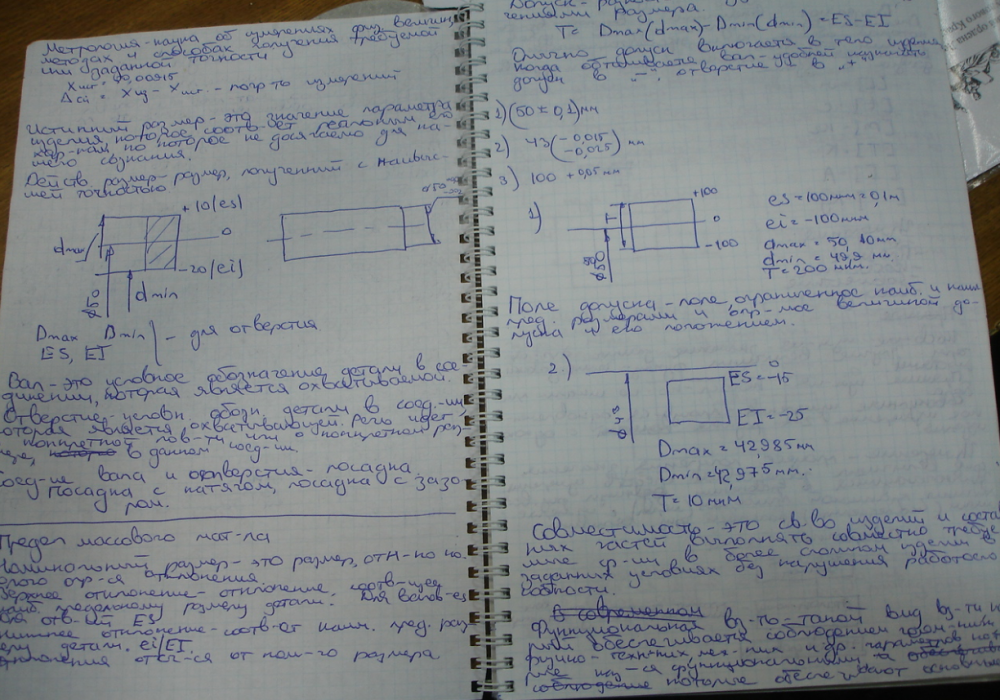 Метрология-наука об измерениях физ. величин,
методах и способах получения требуемой
или заданной точности
Xист. 20,00915
Δсц = Xц - Xист. - погр-ть измерений
Истинный размер-это значение параметра
изделия которое соотв-ет реальным его
хар-кам но которое не досягаемо для на-
шего сознания.
Действ. размер-размер, полученний с наивыс-
шей точностью
+10(es)
0
dmax
-20(ei)
dmin
Dmax Dmin - для отверстия
ES, EI
Вал-это условное обозначение детали в сое-
динении, которая является охватываемой.
Отверстие-условн. обозн. детали в соед-ии,
которая является охватывающей. Речь идет
в данном соед-ии.
Соед-ие вала и отверстия-посадка.
Посадка с натягом, посадка с зазо-
ром.
Предел массового мат-ла
Номинальный размер-это размер, отн-но ко-
торого опр-ся отклонения.
Верхнее отклонение-отклонение, соотв-щее
наиб. предельному размеру детали. Для валов-es
для отв-ий ES
нижнее отклонение-соотв-ет наим. пред. раз-
меру детали. ei/EI.
Отклонения отсч-ся от ном-го размера
размера.
T= Dmax(dmax)-Dmin(dmin)=ES-EI
Обычно допуск включается в тело изделия
допуск в "-", отверстие в "+"
1)(50±0,1)мм
2) 43(-0,015 -0,025) мм
3) 100 +0,05 мм
1)
+100
T
0
-100
es=100мкм=0,1м
ei=-100мкм
dmax=50,10мм
dmin=49,9 мм
T=200 мкм.
Поле допуска-поле, ограниченное наиб. и наим
пред. размерами и опр-мое величиной до-
пуска и его положением.
2)
0
ES=-15
EI=-25
Dmax=42,985мм
Dmin=42,975мм.
T=10мкм
Совместимость-это св-во изделий и соста
ных частей выполнять совместно требуе
мые ф-ии в более сложном изделии в
заданных условиях без нарушения работоспо
собности.
В современном
Функциональная вз-ть-такой вид вз-ти ко
рый обеспечивается соблюдением геом-ких,
физико-технических, мех-ких и др. параметров ко
рые наз-ся функциональными, а
соблюдение которые обеспечивают основные